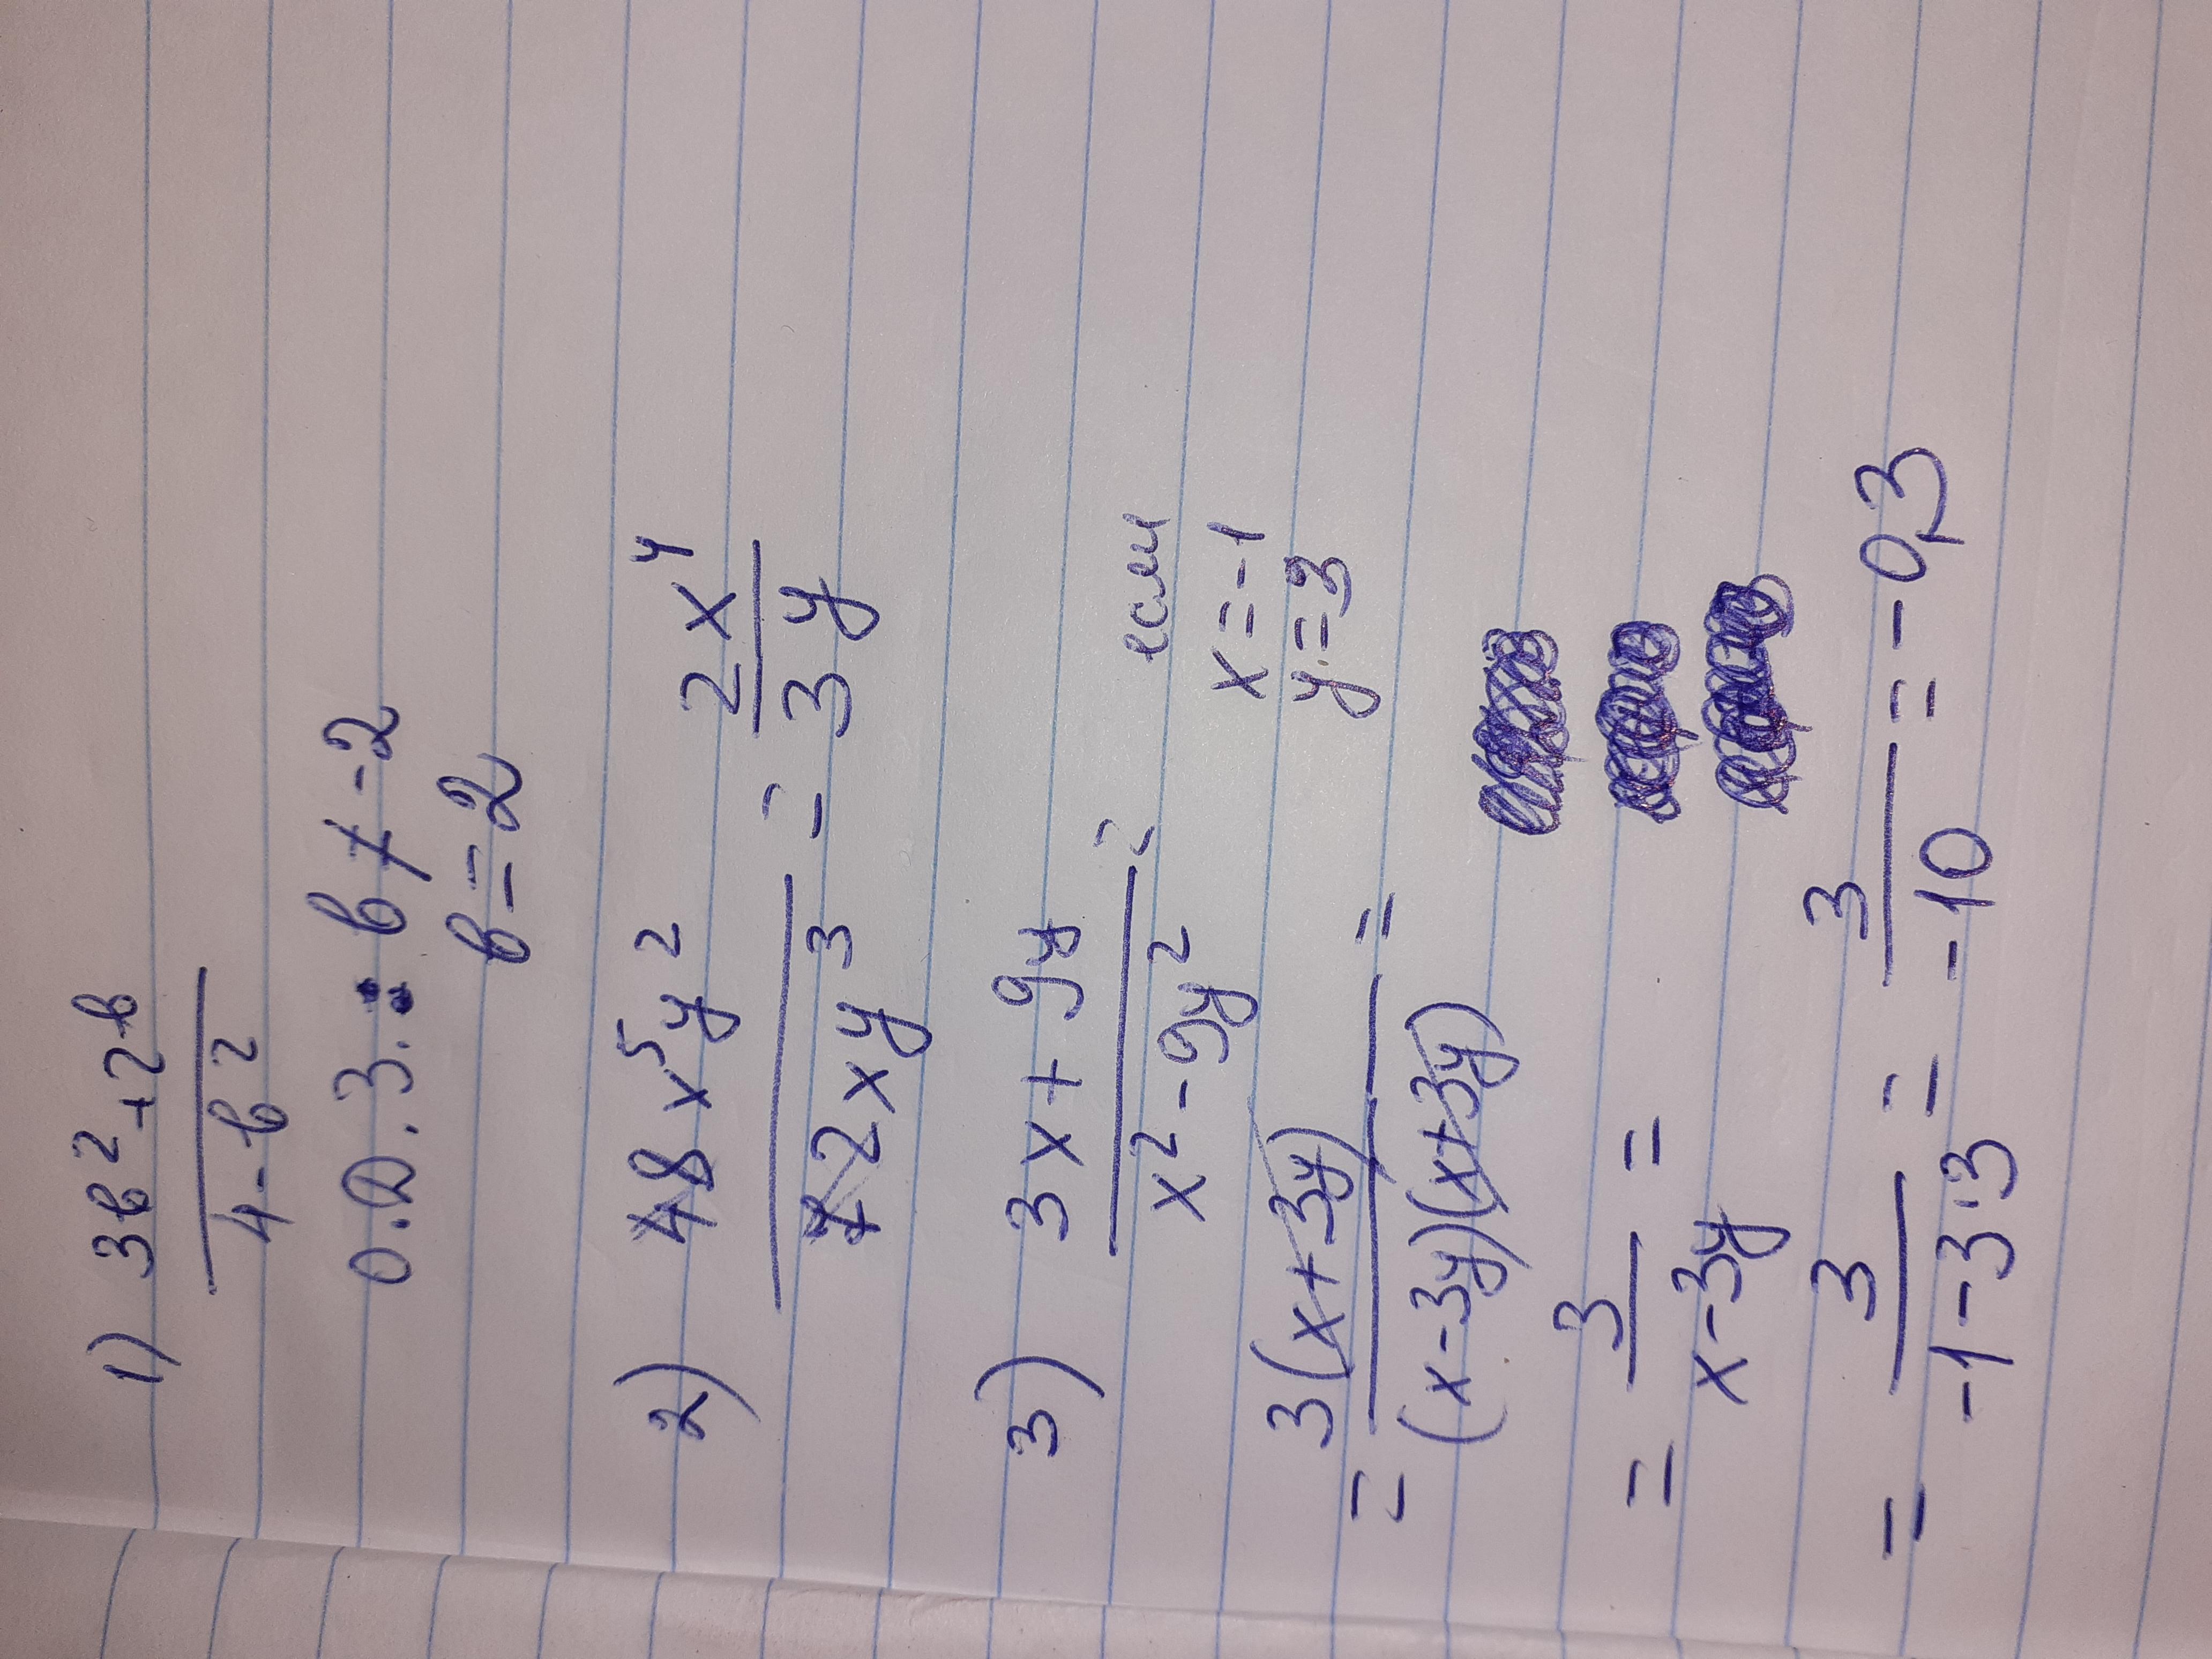 1) 3в²+2в
4-в²
О.Д.З.: в ≠ -2
в = 2
2) 48x⁵y² / 72xy³ = 2x⁴ / 3y
3) 3x+9y / x²-9y² = если
x=-1
y=3
= 3(x+3y) / (x-3y)(x+3y) =
= 3 / x-3y =
= 3 / -1-3·3 = 3 / -10 = -0,3